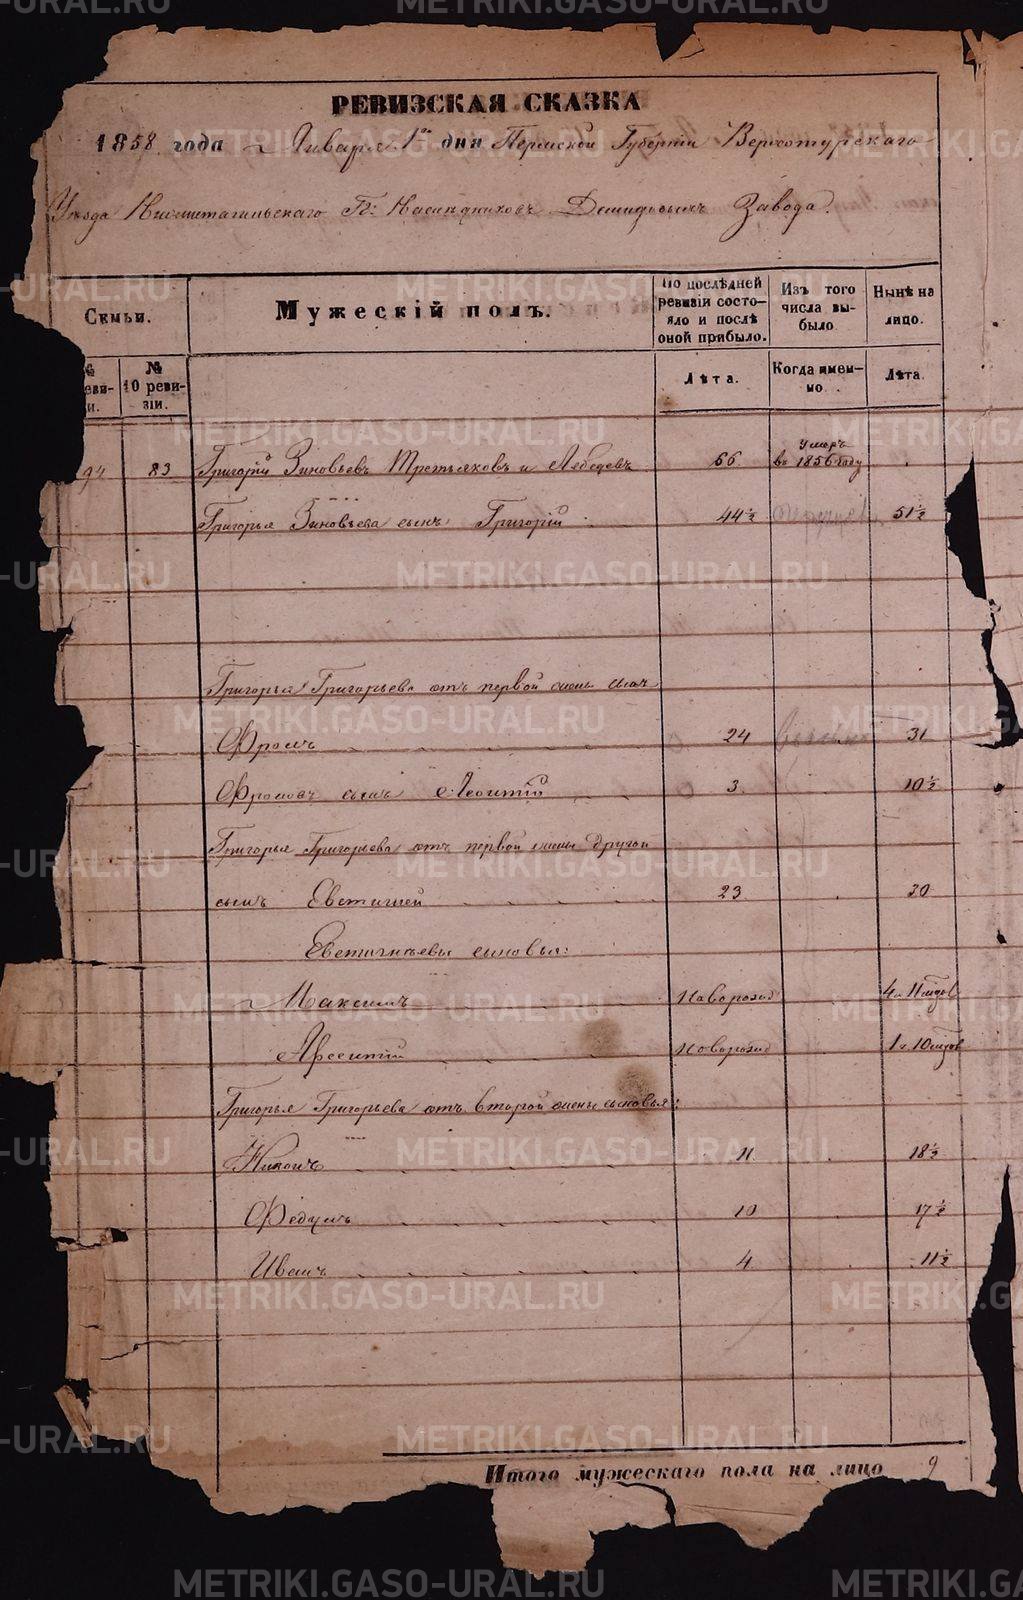 РЕВИЗСКАЯ СКАЗКА
1858 года Января 1го дня Пермской Губерніи Верхотурскаго
Уѣзда Нижнетагильскаго Гг: Наслѣдниковъ Демидовыхъ Завода.
Семьи.
Мужескій полъ.
По послѣдней ревизіи состояло и послѣ оной прибыло.
Изъ того числа выбыло
Нынѣ на лицо.
№ 10 ревизіи.
Лѣта.
Когда именно
Лѣта.
94 83 Григорій Зиновьевъ Третьяковъ и Лебедевъ 66 Умеръ въ 1856 году
Григорья Зиновьева сынъ Григорій 44½ 51½
Григорья Григорьева отъ первой жены сынъ
Фролъ 24 31
Фроловъ сынъ Леонтій 3 10½
Григорья Григорьева отъ первой жены другой
сынъ Евстигней 23 30
Евстигнѣевы сыновья:
Максимъ Новорожд 4 11
Арсентій Новорожд 1 10
Григорья Григорьева отъ второй жены сыновья:
Никонъ 11 18½
Федулъ 10 17½
Иванъ 4 11½
Итого мужескаго пола на лицо 9
METRIKI.GASO-URAL.RU